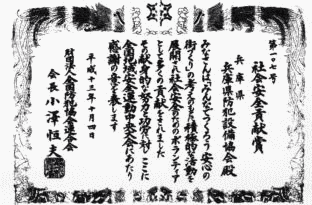 第一〇七号
社会安全貢献賞
兵庫県
兵庫県防犯設備協会殿
みなさんは「みんなでつくろう安心の
街」づくりの考えのもと積極的な活動を
展開し社会安全のためのボランティア
として多くの貢献をされました
その献身的な努力と功労に対しここに
全国地域安全運動中央大会にあたり
感謝の意を表します
平成十三年十月四日
財団法人全国防犯協会連合会
会長 小澤恒夫